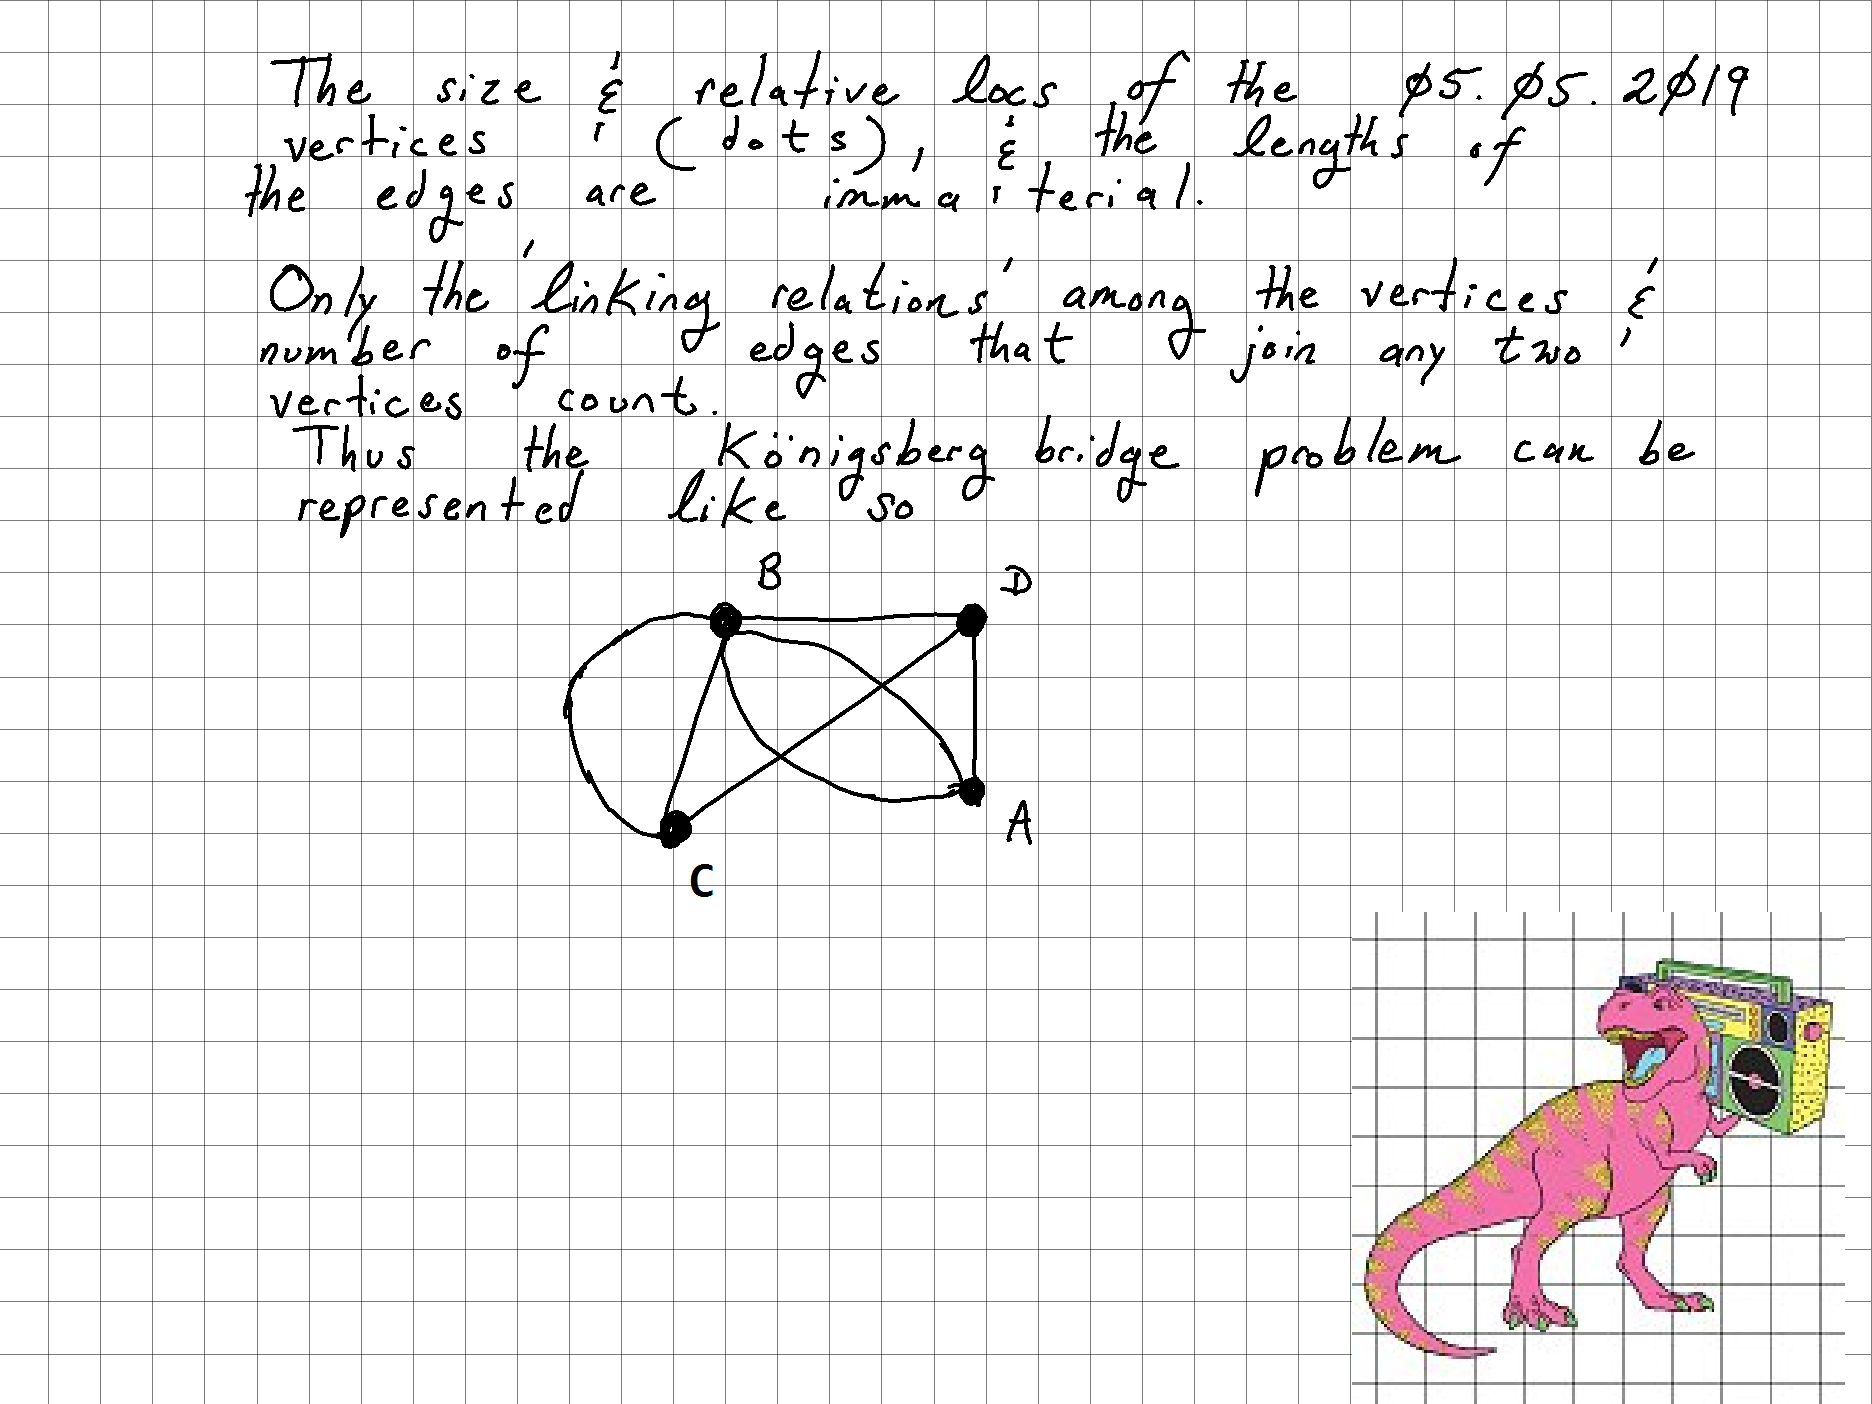 The size & relative locs of the ø5. ø5. 2ø19
vertices (dots), & the lengths of
the edges are immaterial.
Only the 'linking relations' among the vertices &
number of edges that join any two
vertices count.
Thus the Königsberg bridge problem can be
represented like so
B D
A
C